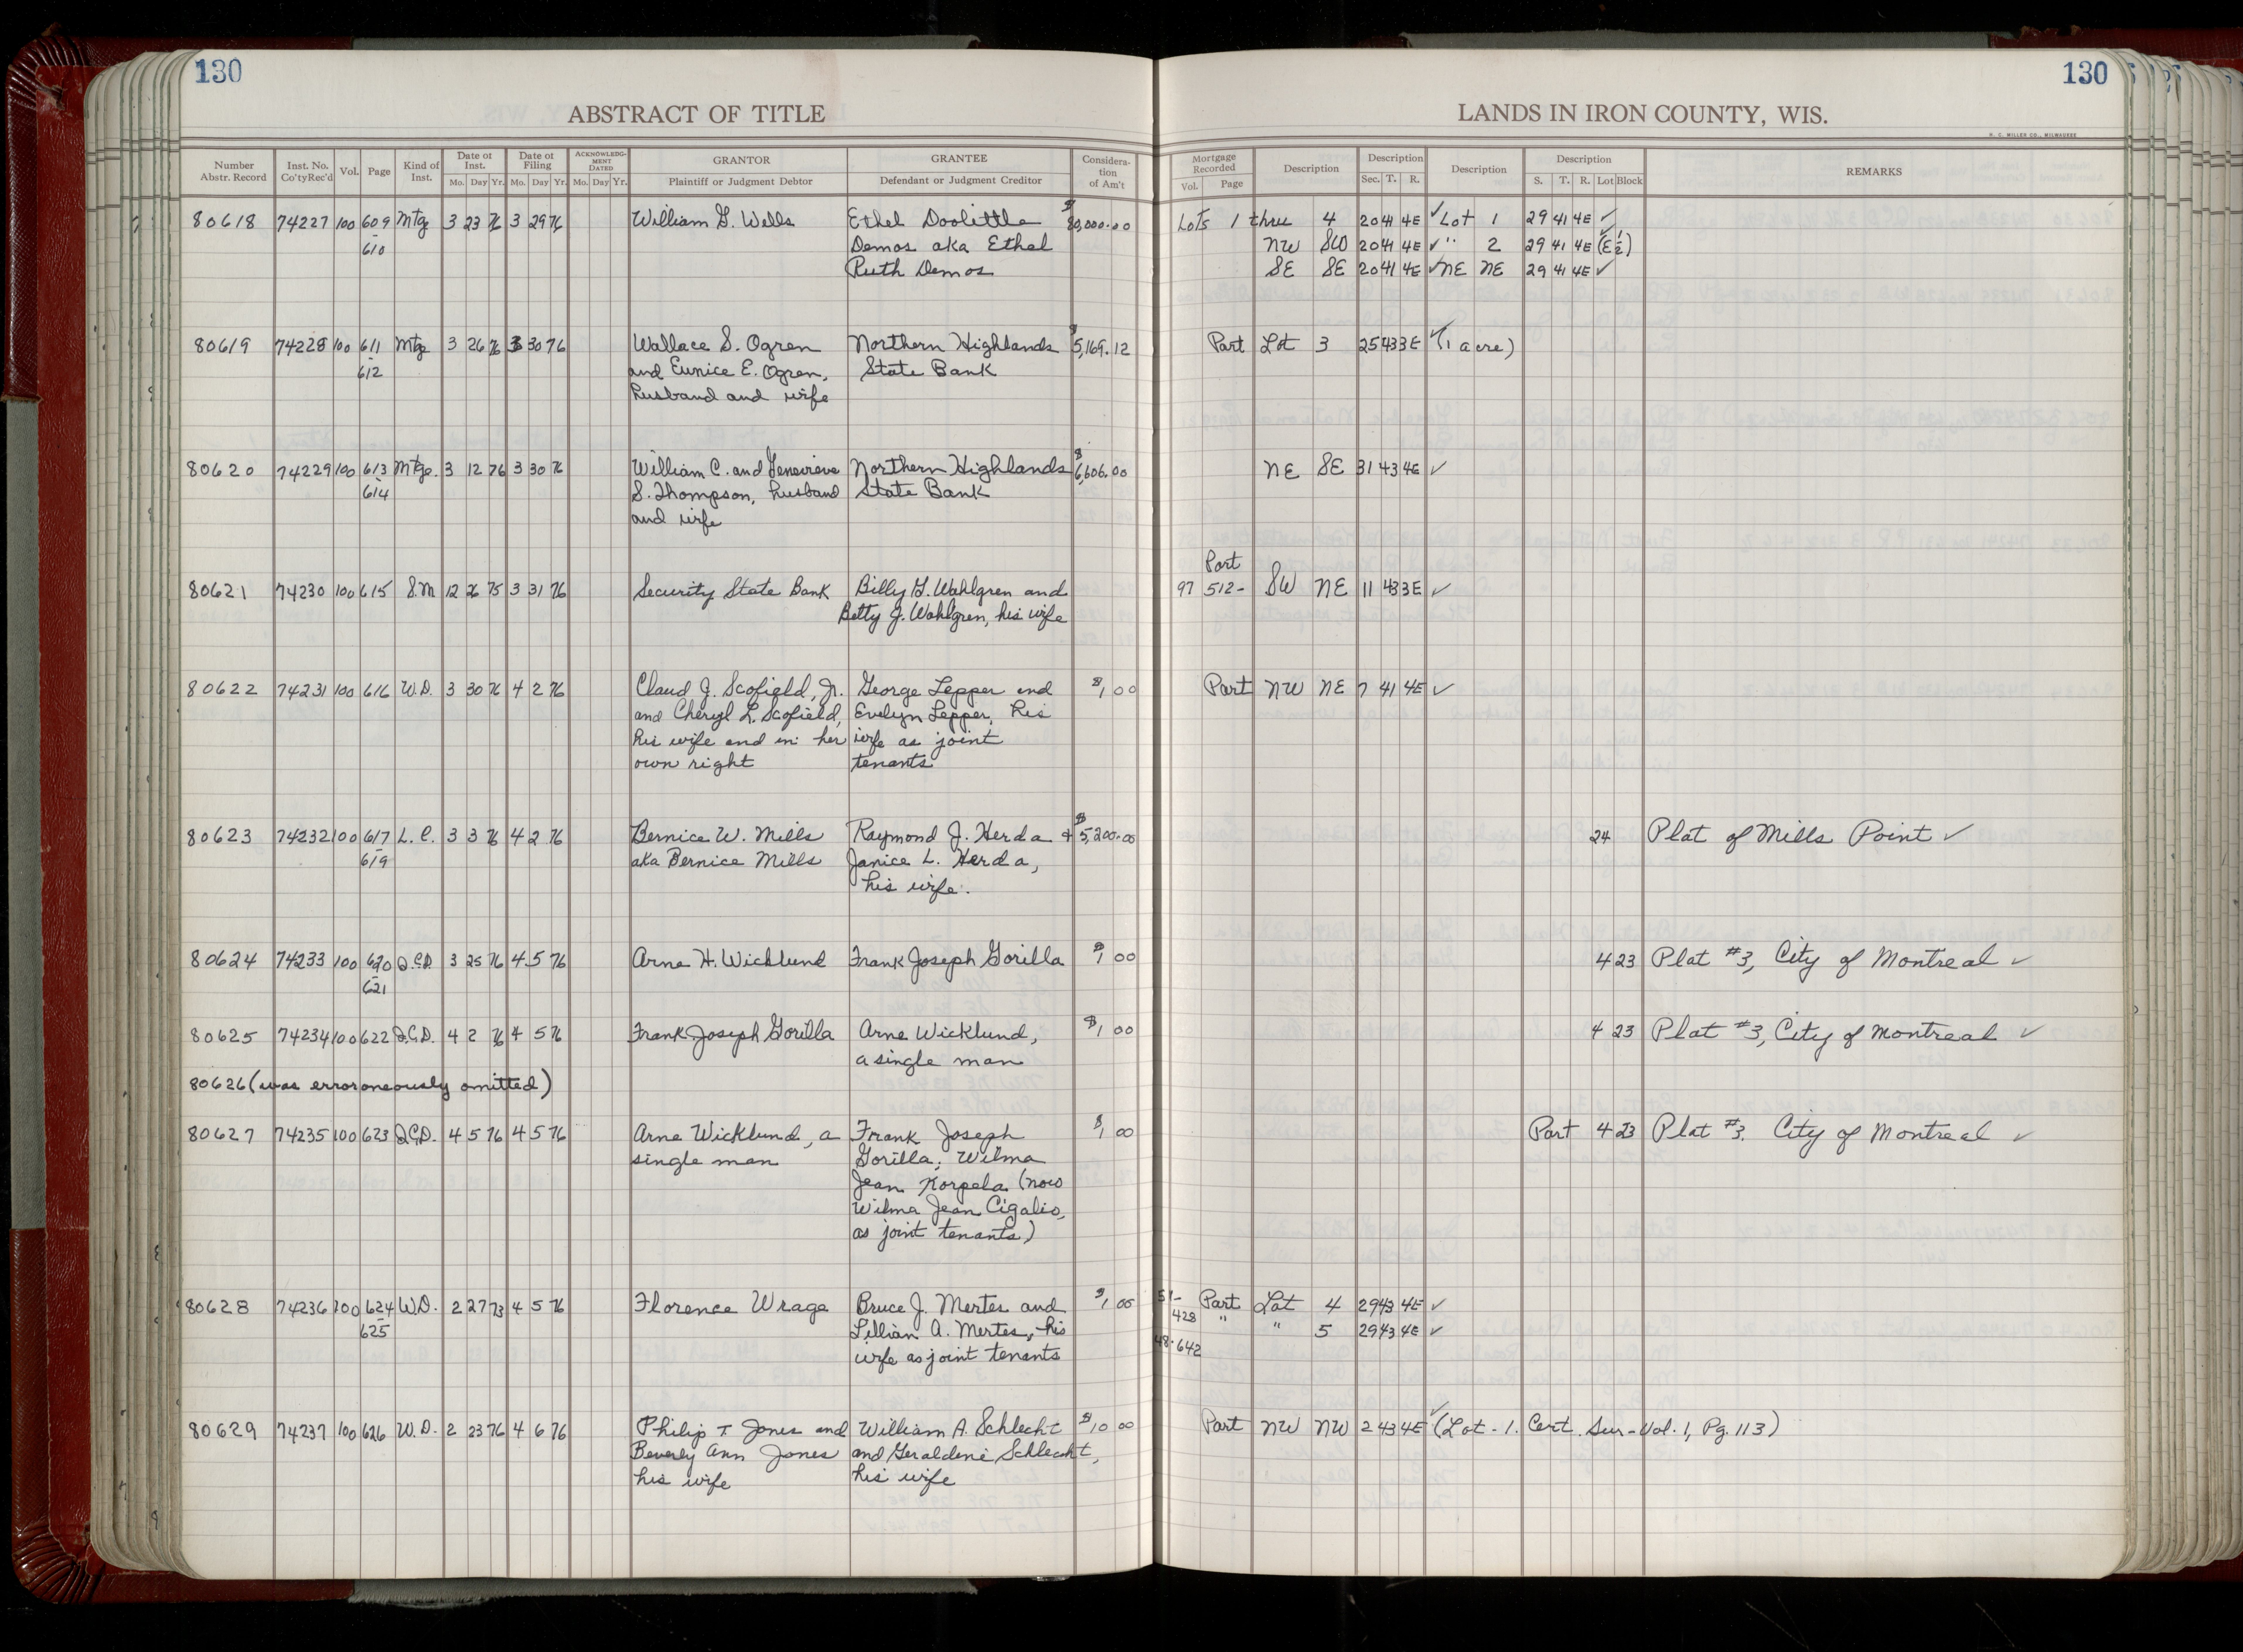 130
130
ABSTRACT OF TITLE
LANDS IN IRON COUNTY, WIS.
H. C. MILLER CO., MILWAUKEE
Number Abstr. Record | Inst. No. Co'ty Rec'd | Vol. | Page | Kind of Inst. | Date of Inst. Mo. Day Yr. | Date of Filing Mo. Day Yr. | ACKNOWLEDGMENT DATED Mo. Day Yr. | GRANTOR Plaintiff or Judgment Debtor | GRANTEE Defendant or Judgment Creditor | Consideration of Am't | Mortgage Recorded Vol. Page | Description | Description Sec. T. R. | Description | Description S. T. R. Lot Block | REMARKS
80618 74227 100 609 Mtg 3 23 76 3 29 76 William G. Wells Ethel Doolittle $80,000.00 Lots 1 thru 4 20 41 4E ✓ Lot 1 29 41 4E ✓
- 610 Demos aka Ethel NW SW 20 41 4E ✓ " 2 29 41 4E (E½) ✓
Ruth Demos SE SE 20 41 4E ✓ NE NE 29 41 4E ✓
80619 74228 100 611 Mtg 3 26 76 3 30 76 Wallace S. Ogren Northern Highlands $5,169.12 Part Lot 3 25 43 3E ✓ (1 acre)
- 612 and Eunice E. Ogren, State Bank
husband and wife
80620 74229 100 613 Mtge. 3 12 76 3 30 76 William C. and Genevieve Northern Highlands $6,606.00 NE SE 31 43 4E ✓
- 614 S. Thompson, husband State Bank
and wife
Part
80621 74230 100 615 S.M 12 26 75 3 31 76 Security State Bank Billy G. Wahlgren and 97 512- SW NE 11 43 3E ✓
Betty J. Wahlgren, his wife
80622 74231 100 616 W.D. 3 30 76 4 2 76 Claud J. Scofield, Jr. George Lepper and $1 00 Part NW NE 7 41 4E ✓
and Cheryl L. Scofield, Evelyn Lepper, his
his wife and in her wife as joint
own right tenants
80623 74232 100 617 L.C. 3 3 76 4 2 76 Bernice W. Mills Raymond J. Herda + $5,200.00 24 Plat of Mills Point ✓
- 619 aka Bernice Mills Janice L. Herda,
his wife.
80624 74233 100 620 Q.C.D. 3 25 76 4 5 76 Arne H. Wicklund Frank Joseph Gorilla $1 00 4 23 Plat #3, City of Montreal ✓
- 621
80625 74234 100 622 Q.C.D. 4 2 76 4 5 76 Frank Joseph Gorilla Arne Wicklund, $1 00 4 23 Plat #3, City of Montreal ✓
a single man
80626 (was erroroneously omitted)
80627 74235 100 623 Q.C.D. 4 5 76 4 5 76 Arne Wicklund, a Frank Joseph $1 00 Part 4 23 Plat #3. City of Montreal ✓
single man Gorilla; Wilma
Jean Korpela (now
Wilma Jean Cigalio,
as joint tenants)
80628 74236 100 624 W.D. 2 27 73 4 5 76 Florence Wrage Bruce J. Mertes and $1 00 51- Part Lot 4 29 43 4E ✓
- 625 Lillian A. Mertes, his 428 " " 5 29 43 4E ✓
wife as joint tenants 48-642
80629 74237 100 626 W.D. 2 23 76 4 6 76 Philip T Jones and William A. Schlecht $10 00 Part NW NW 2 43 4E ✓ (Lot-1. Cert Sur-Vol. 1, Pg. 113)
Beverly Ann Jones and Geraldine Schlecht,
his wife his wife